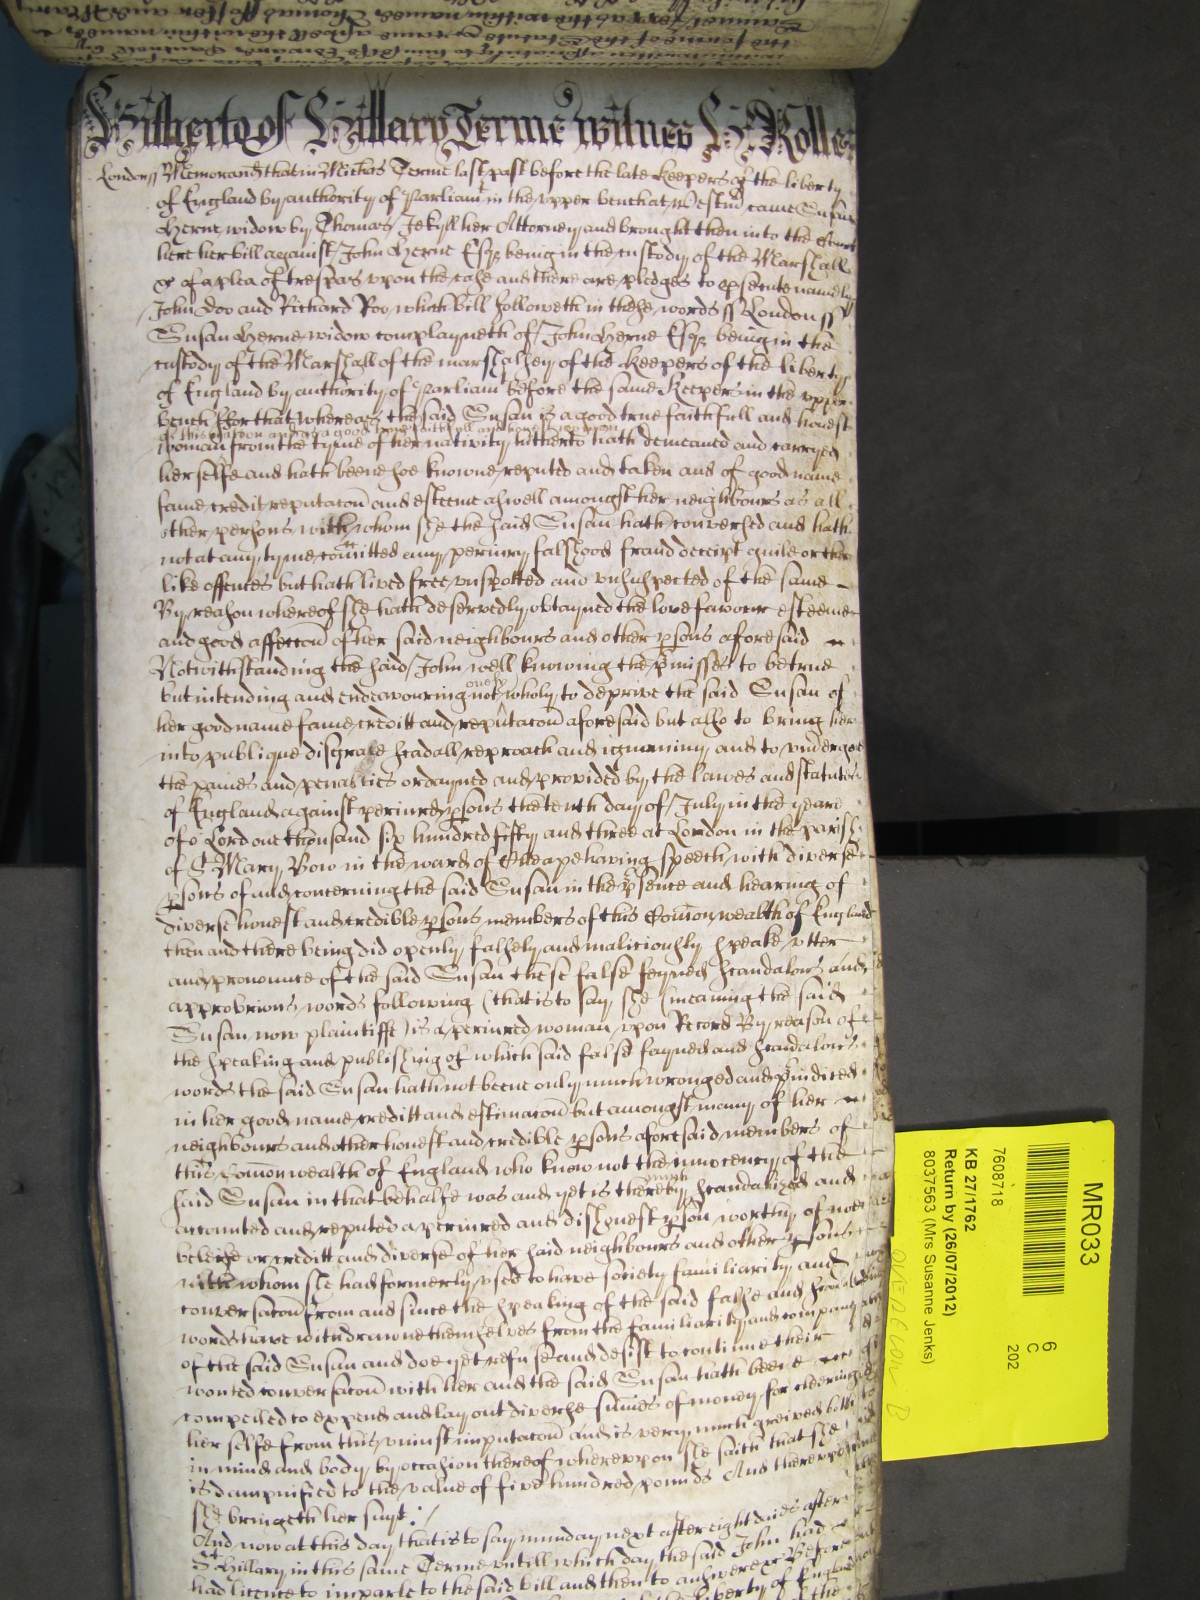 Hitherto of Hillary Terme witnes H: Rolle
London ss Memorand that in Michas Terme last past before the late Keepers of the liberty
of England by authority of Parliamt in the upper bench at Westmr came Susan
Herne widow by Thomas Jekyll her Attorney and brought then into the Court
here her bill against John Herne Esqr being in the custody of the Marshall
&c of a plea of trespas upon the case and there are pledges to prsecute namely
John Doo and Richard Roo, which bill followeth in these words ss London ss
Susan Herne widow complayneth of John Herne Esqr being in the
custody of the Marshall of the marshalsey of the Keepers of the liberty
of England by authority of Parliamt before the same Keepers in the upper
bench ffor that whereas the said Susan is a good true faithfull and honest
woman from the tyme of her nativity hitherto hath demeaned and carryed
her selfe and hath beene soe knowne reputed and taken and of good name
fame credit reputacon and esteeme aswell amongst her neighbours as all
other persons with whom she the said Susan hath conversed and hath
not at any tyme comitted any periury falshood fraud deceipt guile or other
like offences but hath lived free unspotted and unsuspected of the same
By reason whereof she hath deservedly obtayned the love favour esteeme
and good affeccon of her said neighbours and other psons aforesaid
Notwithstanding the said John well knowing the pmisses to be true
but intending and endeavouring not onely wholy to deprive the said Susan of
her good name fame creditt and reputacon aforesaid but also to bring her
into publique disgrace scandall reproach and ignominy and to undergoe
the paines and penalties ordayned and provided by the lawes and statutes
of England against periured psons the tenth day of July in the yeare
of or Lord one thousand six hundred fifty and three at London in the parish
of St Mary Bow in the ward of Cheape having speech with diverse
psons of and concerning the said Susan in the psence and hearing of
diverse honest and credible psons members of this Comon wealth of England
then and there being did openly falsely and maliciously speake utter
and pronounce of the said Susan these false feyned scandalous and
approbrious words following (that is to say) she (meaning the said
Susan now plaintiffe) is a periured woman upon Record By reason of
the speaking and publishing of which said false feyned and scandalous
words the said Susan hath not beene only much wronged and piudiced
in her good name creditt and estimacon but amongst many of her
neighbours and other honest and credible psons aforesaid members of
this Comon wealth of England who knew not the innocency of the
said Susan in that behalfe was and yet is thereby much scandalized and
accounted and reputed a periured and dishonest pson worthy of noe
beleife or creditt and diverse of her said neighbours and other psons
with whom she had formerly used to have society familiarity and
conversacon from and since the speaking of the said false and scandalous
words have withdrawne themselves from the familiarity and company
of the said Susan and doe yet refuse and desist to continue their
wonted conversacon with her and the said Susan hath beene
compelled to expend and lay out diverse sumes of money for cleering
her selfe from this uniust imputacon and is very much greived both
in mind and body by occasion thereof whereupon she saith that she
is dampnified to the value of five hundred pounds And thereupon
she bringeth her suyt :/
And now at this day that is to say munday next after eight daies after
St Hillary in this same Terme untill which day the said John had
had licence to imparle to the said bill and then to answere &c Before
MR033
6
C
202
7608718
KB 27/1762
Return by (26/07/2012)
8037563 (Mrs Susanne Jenks)